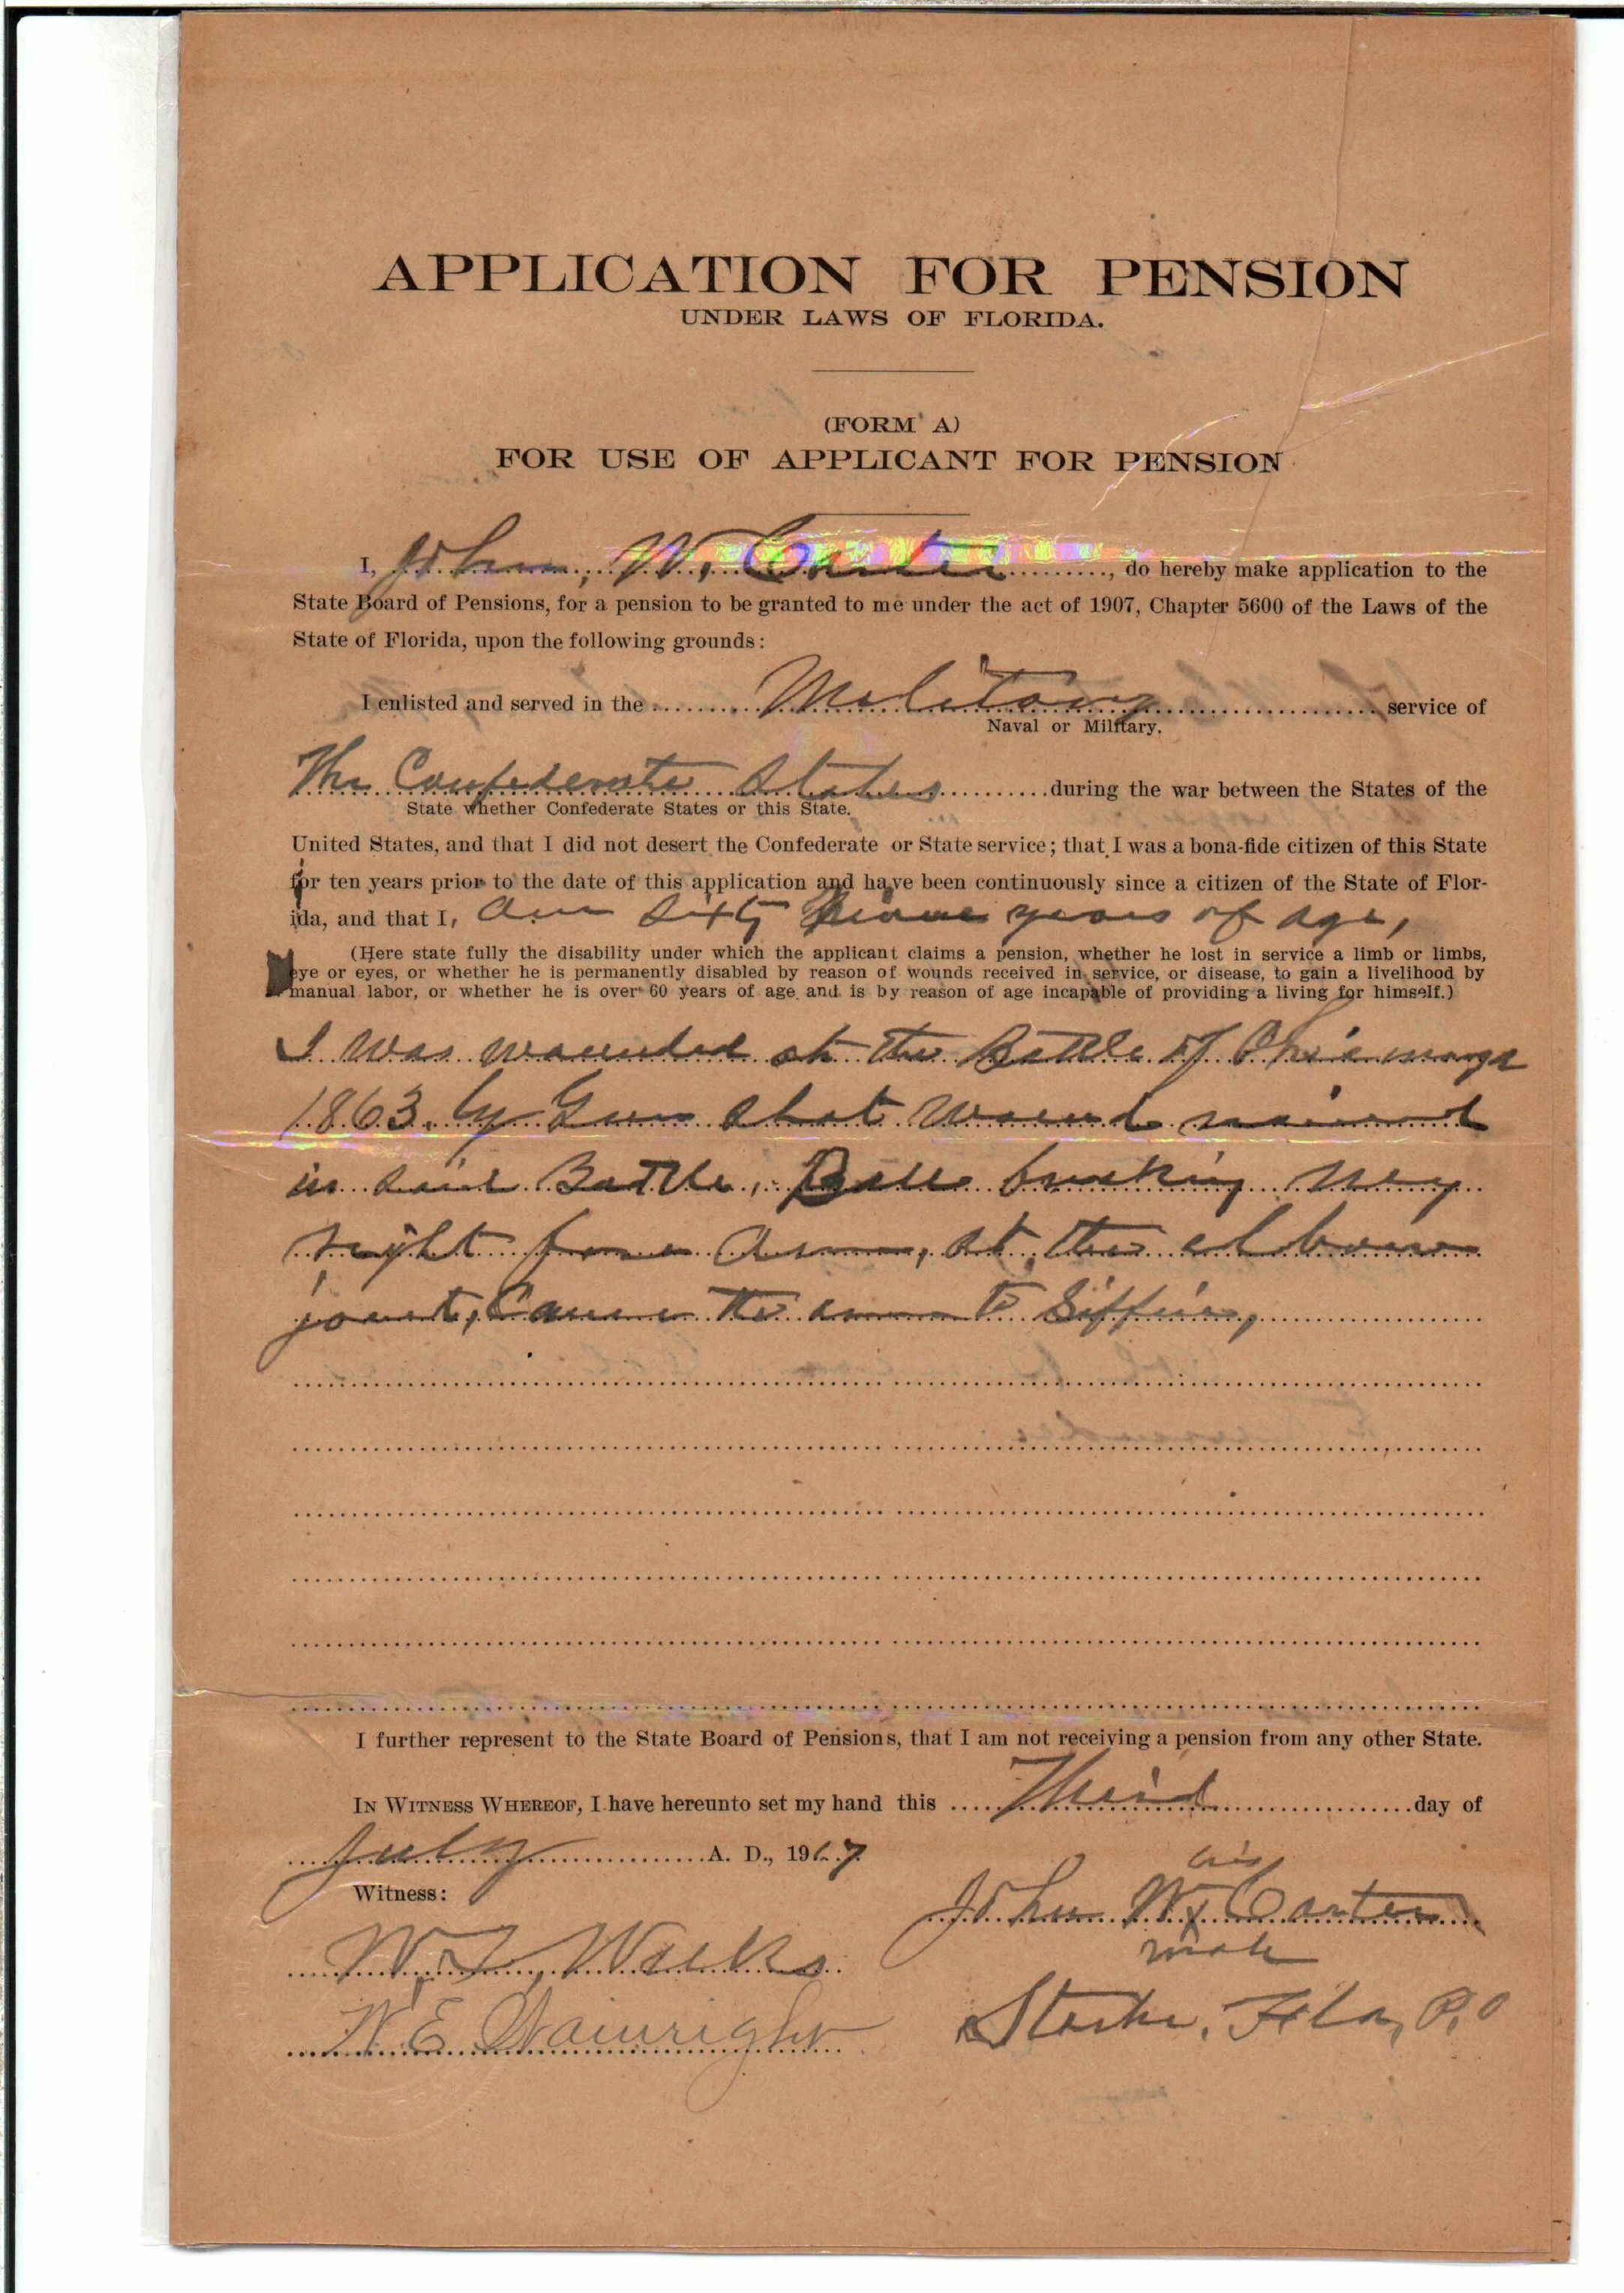 APPLICATION FOR PENSION
UNDER LAWS OF FLORIDA.
(FORM A)
FOR USE OF APPLICANT FOR PENSION
I, John, W. Carter, do hereby make application to the
State Board of Pensions, for a pension to be granted to me under the act of 1907, Chapter 5600 of the Laws of the
State of Florida, upon the following grounds:
I enlisted and served in the Militavy service of
Naval or Military.
The Confederate States during the war between the States of the
State whether Confederate States or this State.
United States, and that I did not desert the Confederate or State service; that I was a bona-fide citizen of this State
for ten years prior to the date of this application and have been continuously since a citizen of the State of Flor-
ida, and that I, am Sixty years of age,
(Here state fully the disability under which the applicant claims a pension, whether he lost in service a limb or limbs,
eye or eyes, or whether he is permanently disabled by reason of wounds received in service, or disease, to gain a livelihood by
manual labor, or whether he is over 60 years of age and is by reason of age incapable of providing a living for himself.)
I was wounded at the Battle of
1863. by Gun shot wound
in said Battle, Ball breaking my
right fore arm, at the elbow
joint, Cause the arm to
I further represent to the State Board of Pensions, that I am not receiving a pension from any other State.
IN WITNESS WHEREOF, I have hereunto set my hand this Third day of
July A. D., 19 7.
his
Witness: John W x Carter
mark
W. T. Weeks
Starke, Fla, P.O
W. E. Wainright